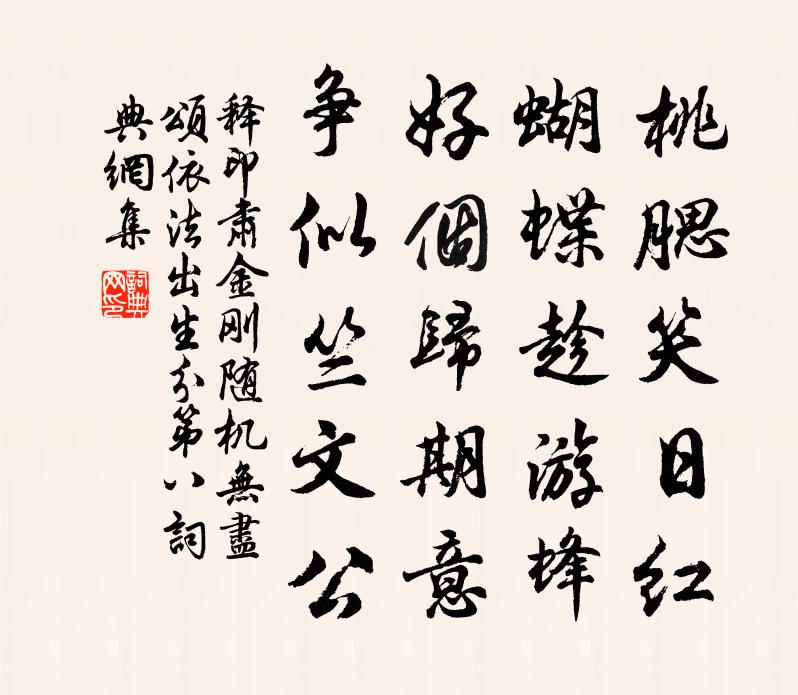 桃腮笑日红
蝴蝶趁游蜂
好個歸期意
争似竺文公
释印肅金刚随机無盡
頌依法出生分第八詞
典網集
詞典網印